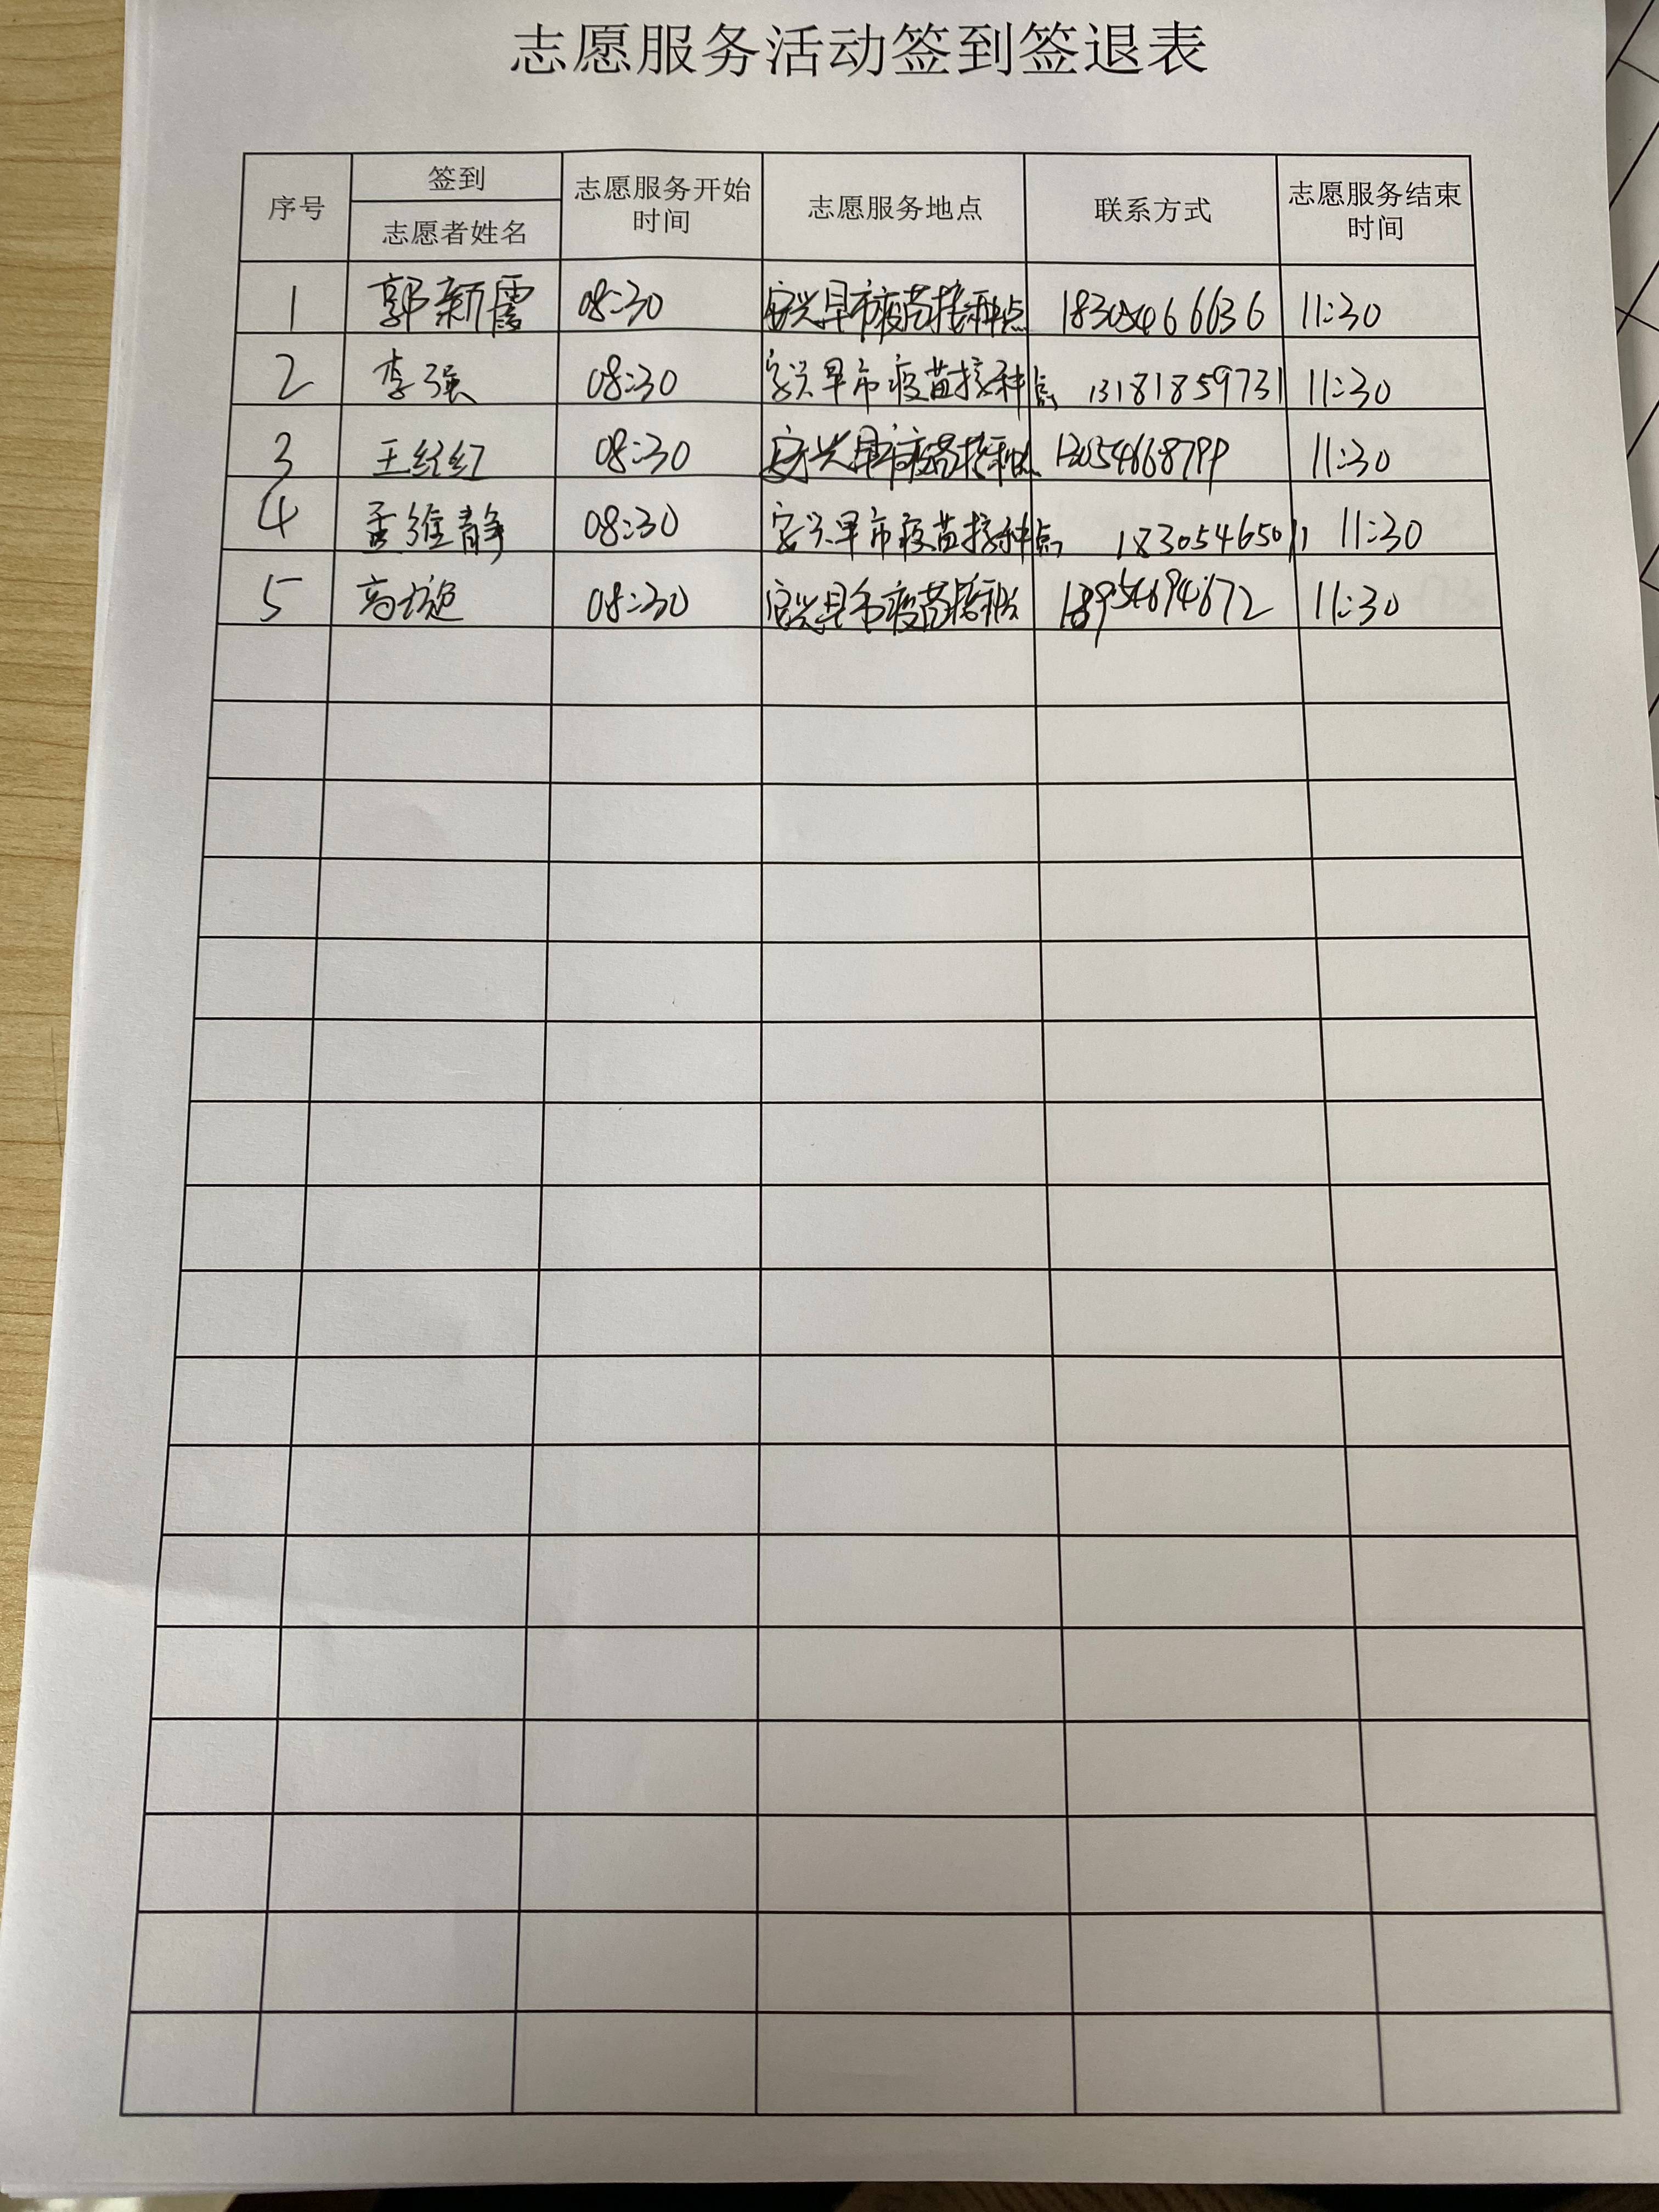 志愿服务活动签到签退表
序号 签到 志愿者姓名 志愿服务开始时间 志愿服务地点 联系方式 志愿服务结束时间
1 郭新霞 08:30 安兴早市疫苗接种点 18305466636 11:30
2 李强 08:30 安兴早市疫苗接种点 13181859731 11:30
3 王红红 08:30 安兴早市疫苗接种点 13054668799 11:30
4 孟维静 08:30 安兴早市疫苗接种点 18305465011 11:30
5 08:30 安兴早市疫苗接种点 18954694672 11:30